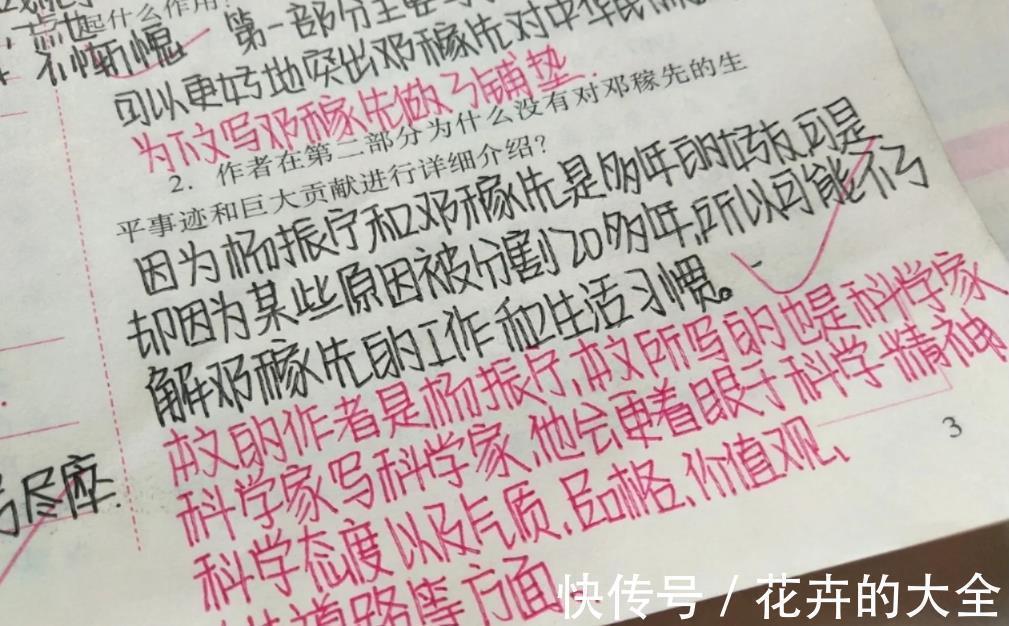 起什么作用?
第一部分主要
可以更好地突出邓稼先对中华民
为下文写邓稼先做了铺垫.
2. 作者在第二部分为什么没有对邓稼先的生
平事迹和巨大贡献进行详细介绍?
因为杨振宁和邓稼先是多年的好友,可是
却因为某些原因被分割20多年,所以可能不了
解邓稼先的工作和生活习惯。
本文的作者是杨振宁,本文所写的也是科学家
科学家写科学家,他会更着眼于科学精神
科学态度以及气质、品格、价值观、
道路等方面。
尽瘁.
3
快传号 / 花卉的大全